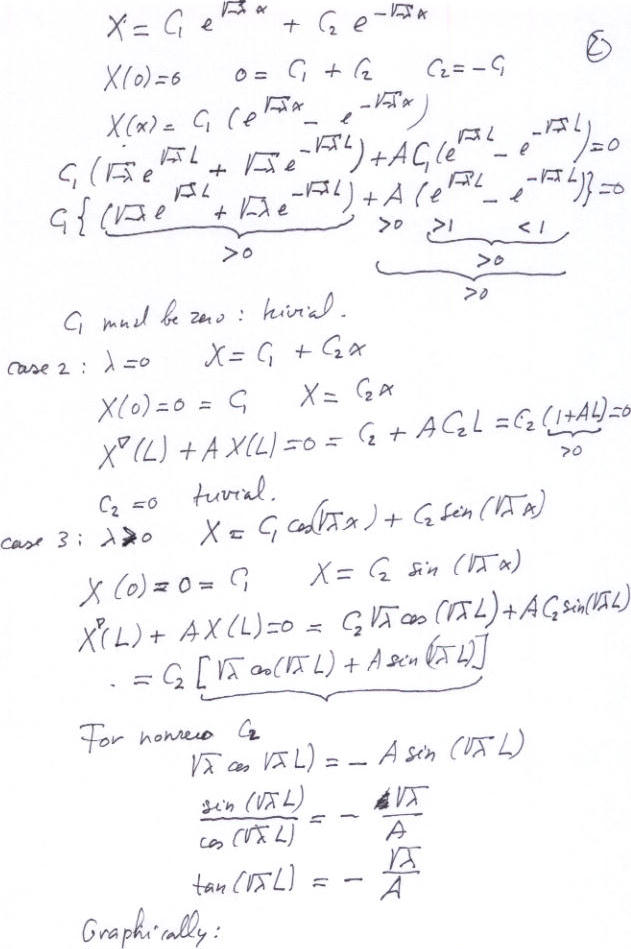 X = C₁ e^{√-λ x} + C₂ e^{-√-λ x}
②
X(0)=0   0 = C₁ + C₂   C₂ = -C₁
X(x) = C₁ (e^{√-λ x} - e^{-√-λ x})
C₁ (√-λ e^{√-λ L} + √-λ e^{-√-λ L}) + A C₁ (e^{√-λ L} - e^{-√-λ L}) = 0
C₁ { (√-λ e^{√-λ L} + √-λ e^{-√-λ L}) + A (e^{√-λ L} - e^{-√-λ L}) } = 0
>0   >0   >1   <1
>0
>0
C₁ must be zero : trivial.
case 2 : λ=0   X = C₁ + C₂x
X(0)=0 = C₁   X = C₂x
X'(L) + A X(L) = 0 = C₂ + A C₂ L = C₂ (1+AL) = 0
>0
C₂ = 0   trivial.
case 3 : λ>0   X = C₁ cos(√λ x) + C₂ sin (√λ x)
X (0) = 0 = C₁   X = C₂ sin (√λ x)
X'(L) + A X(L) = 0 = C₂ √λ cos (√λ L) + A C₂ sin(√λ L)
. = C₂ [ √λ cos(√λ L) + A sin (√λ L) ]
For nonzero C₂
√λ cos √λ L) = - A sin (√λ L)
sin (√λ L) / cos (√λ L) = - √λ / A
tan (√λ L) = - √λ / A
Graphically :